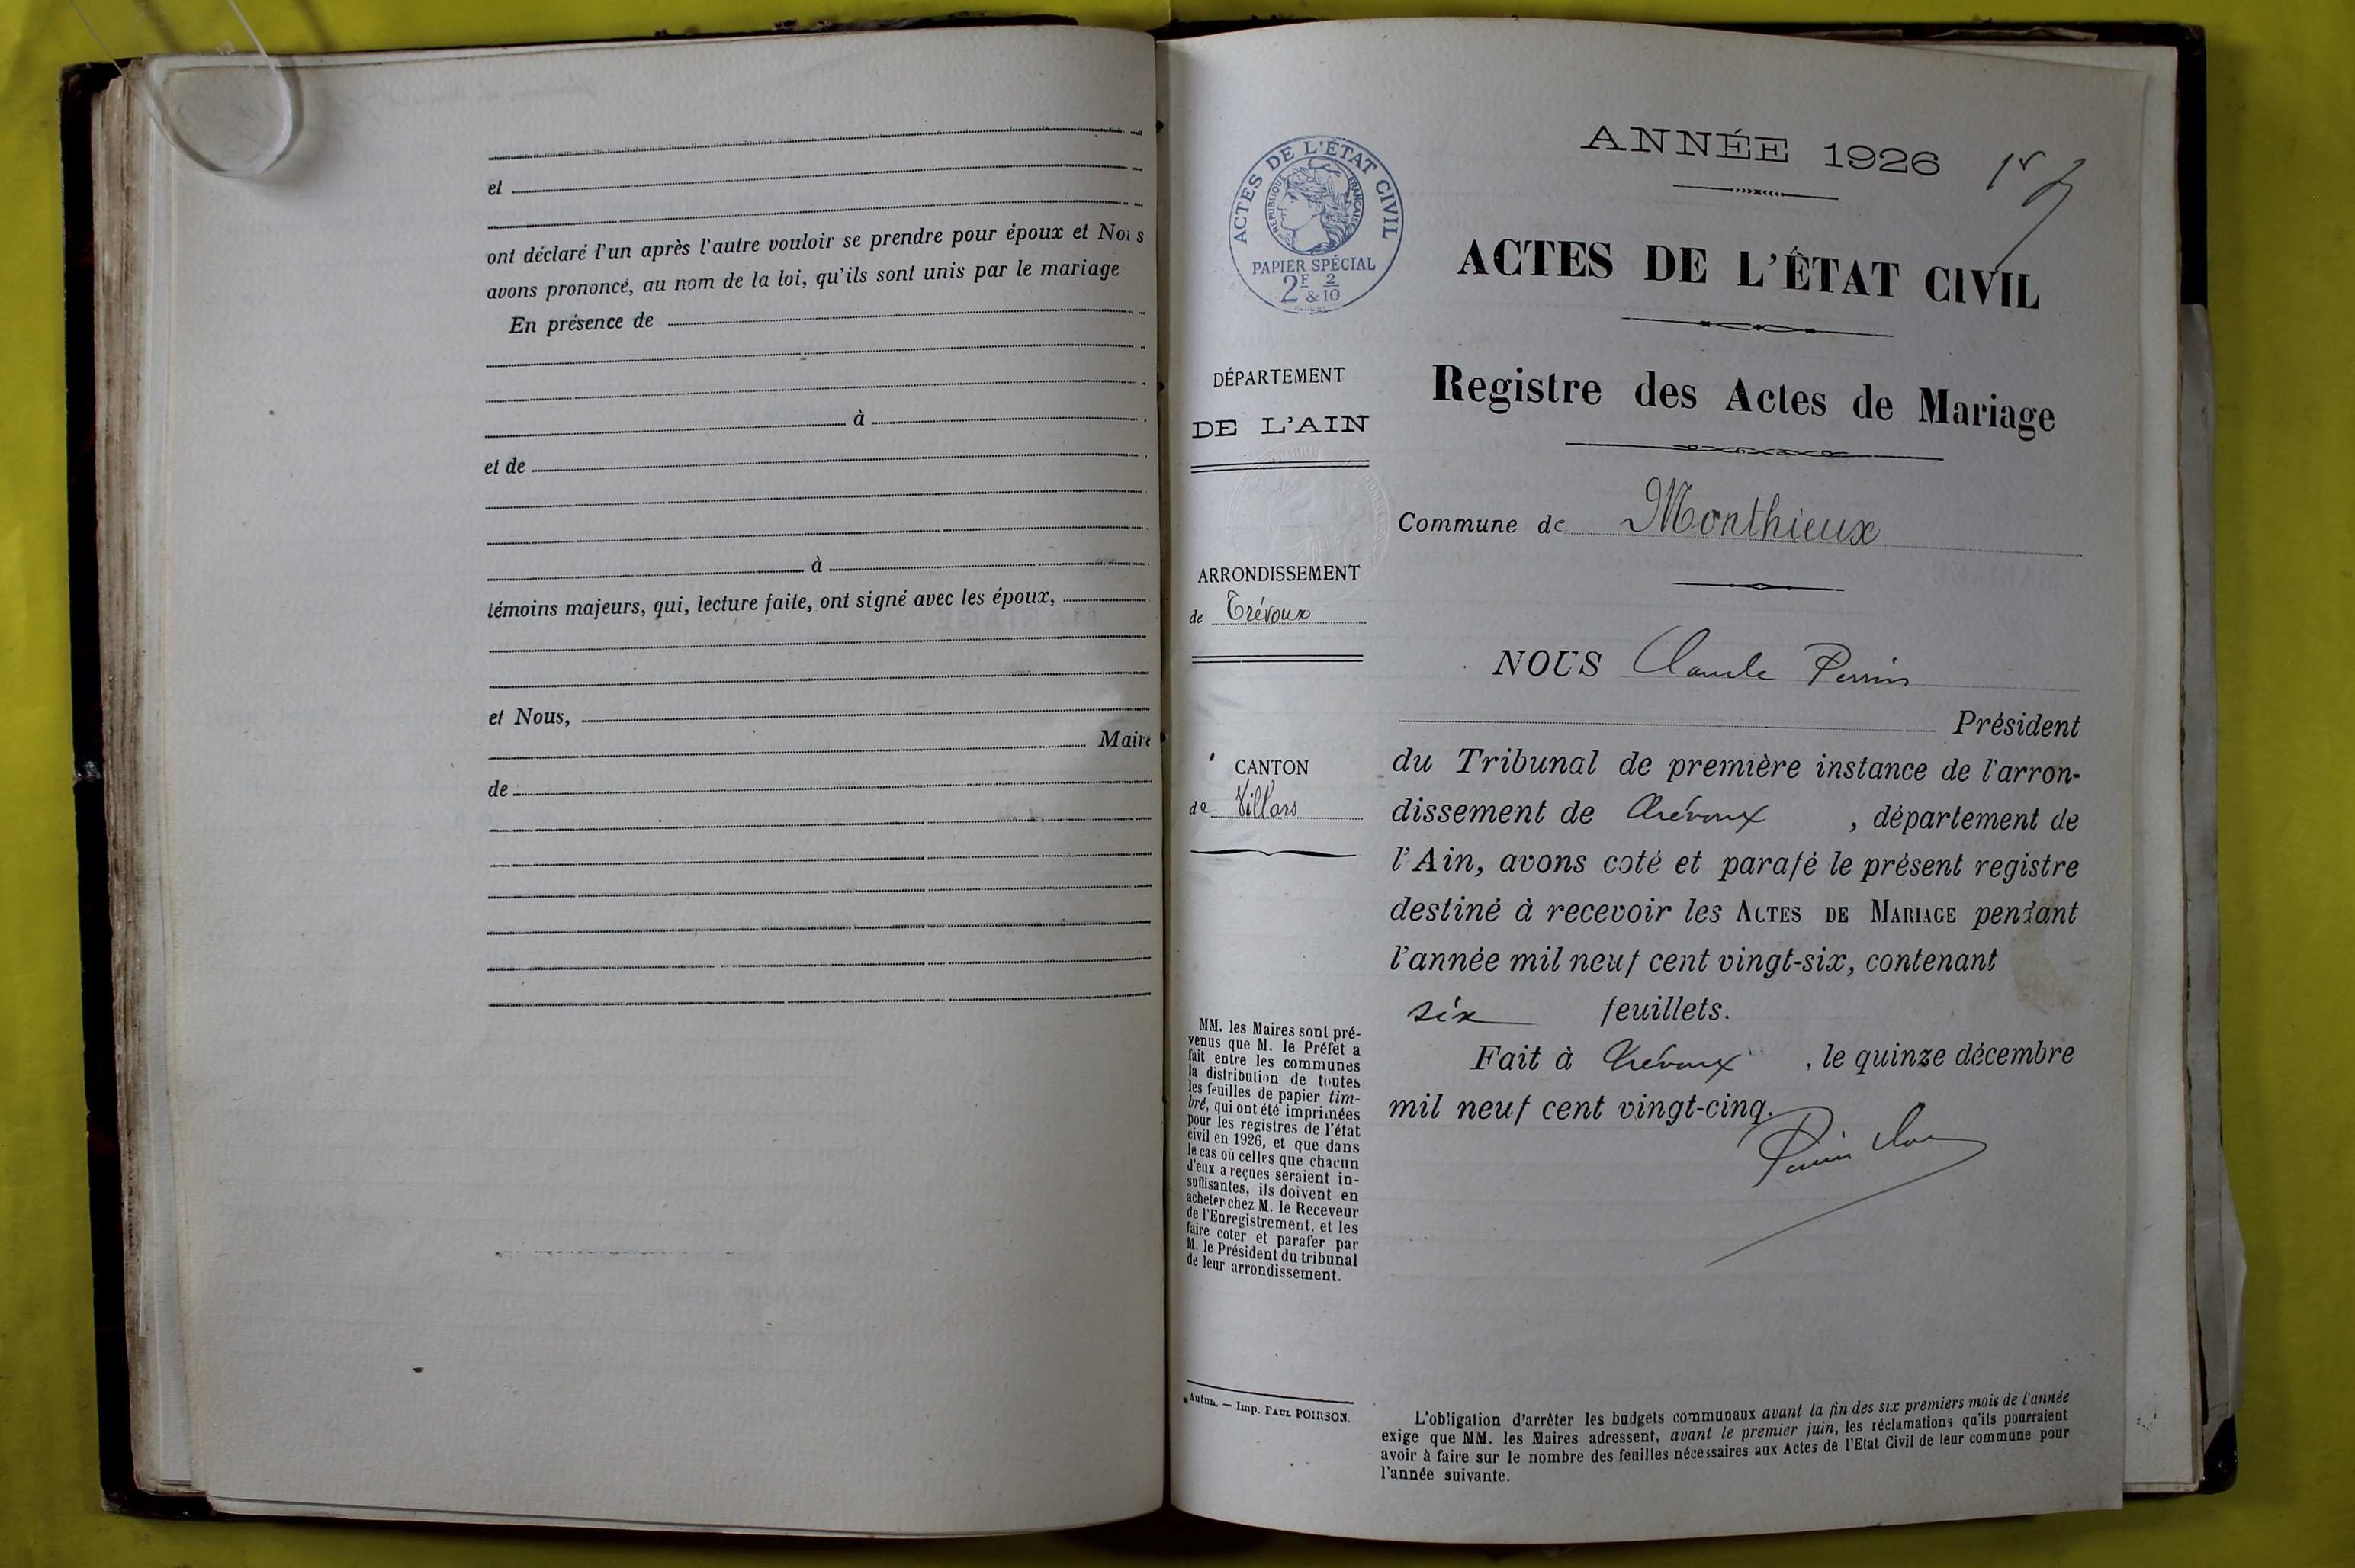 et
ont déclaré l'un après l'autre vouloir se prendre pour époux et Nous
avons prononcé, au nom de la loi, qu'ils sont unis par le mariage
En présence de
à
et de
à
témoins majeurs, qui, lecture faite, ont signé avec les époux,
et Nous,
Maire
de
ANNÉE 1926
ACTES DE L'ÉTAT CIVIL
RÉPUBLIQUE FRANÇAISE
PAPIER SPÉCIAL
2F & 2/10
ACTES DE L'ÉTAT CIVIL
Registre des Actes de Mariage
DÉPARTEMENT
DE L'AIN
Commune de Monthieux
ARRONDISSEMENT
de Trévoux
NOUS Claude Perrin
Président
du Tribunal de première instance de l'arron-
dissement de Trévoux, département de
l'Ain, avons coté et parafé le présent registre
destiné à recevoir les ACTES DE MARIAGE pendant
l'année mil neuf cent vingt-six, contenant
six feuillets.
Fait à Trévoux, le quinze décembre
mil neuf cent vingt-cinq.
CANTON
de Villars
MM. les Maires sont pré-
venus que M. le Préfet a
fait entre les communes
la distribution de toutes
les feuilles de papier tim-
bré, qui ont été imprimées
pour les registres de l'état
civil en 1926, et que dans
le cas où celles que chacun
d'eux a reçues seraient in-
suffisantes, ils doivent en
acheter chez M. le Receveur
de l'Enregistrement, et les
faire coter et parafer par
M. le Président du tribunal
de leur arrondissement.
Autun. — Imp. PAUL POIRSON.
L'obligation d'arrêter les budgets communaux avant la fin des six premiers mois de l'année
exige que MM. les Maires adressent, avant le premier juin, les réclamations qu'ils pourraient
avoir à faire sur le nombre des feuilles nécessaires aux Actes de l'Etat Civil de leur commune pour
l'année suivante.